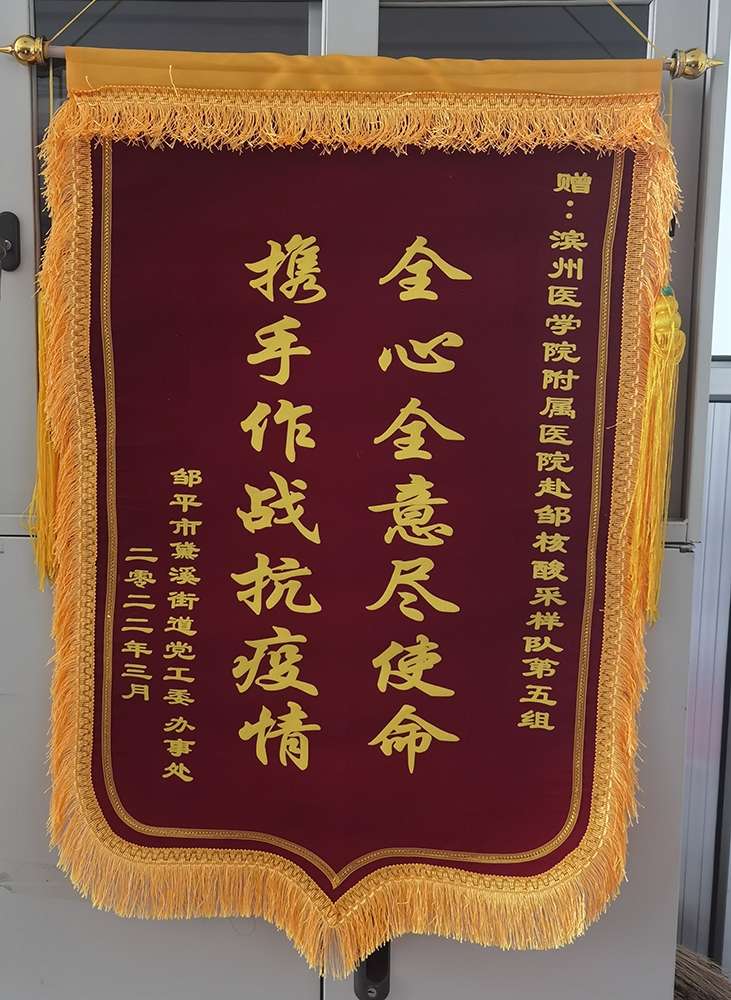 赠：滨州医学院附属医院赴邹核酸采样队第五组
全心全意尽使命
携手作战抗疫情
邹平市黛溪街道党工委 办事处
二零二二年三月